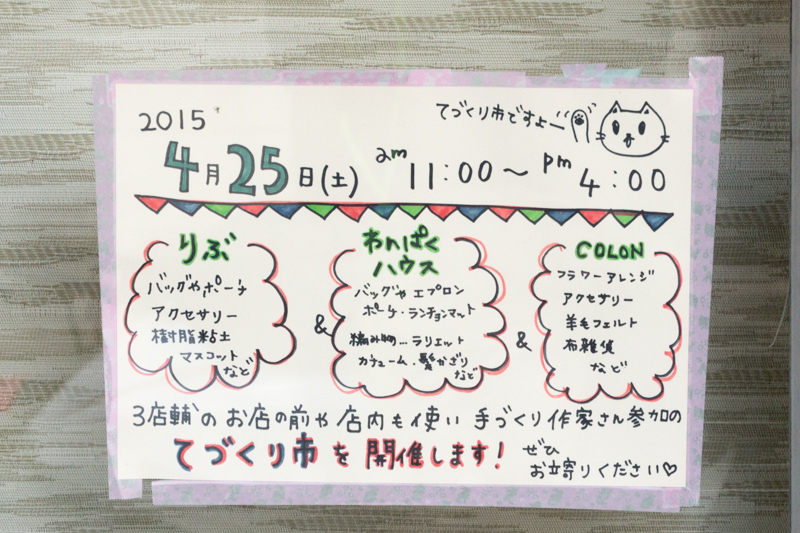 てづくり市ですよー
2015
4月25日(土) am 11:00～pm 4:00
りぶ
バッグやポーチ
アクセサリー
樹脂粘土
マスコット
など
&
わんぱく
ハウス
バッグや エプロン
ポーチ・ランチョンマット
編み物…ラリエット
カチューム・髪かざり
など
&
COLON
フラワーアレンジ
アクセサリー
羊毛フェルト
布雑貨
など
3店舗の お店の前や 店内も使い 手づくり作家さん参加の
てづくり市を開催します!
ぜひ
お立寄りください♡